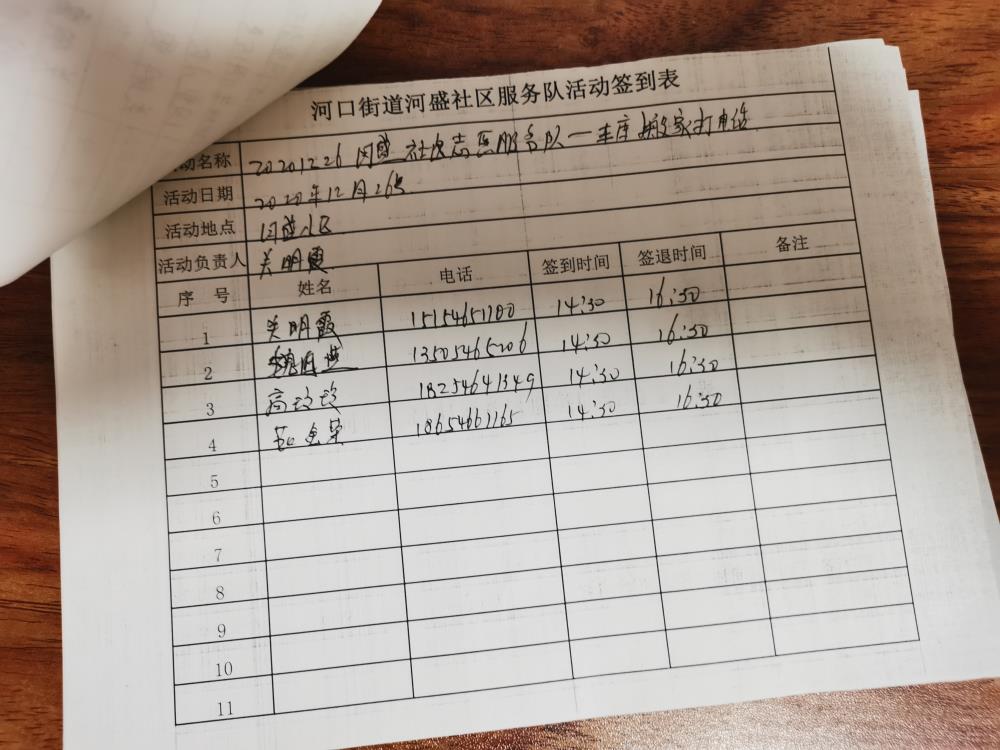 河口街道河盛社区服务队活动签到表
动名称 20201226 河盛社区志愿服务队一车库搬家打电话
活动日期 2020年12月26日
活动地点 河盛小区
活动负责人 关明霞
序 号 姓名 电话 签到时间 签退时间 备注
1 关明霞 15154651180 14:30 16:30
2 13505465206 14:30 16:30
3 高玲玲 18254641349 14:30 16:30
4 18654661165 14:30 16:30
5
6
7
8
9
10
11